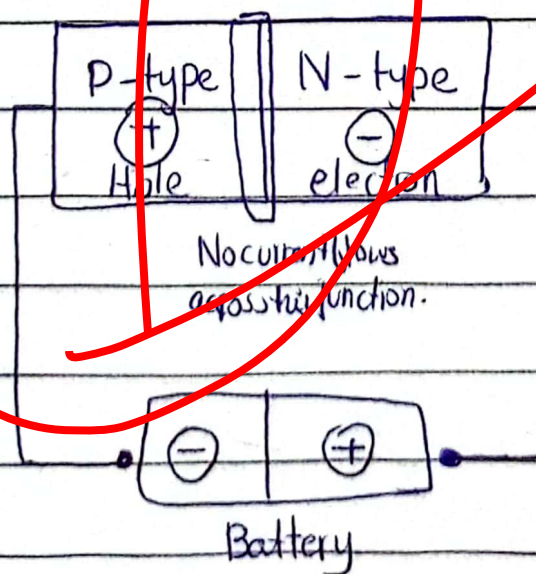 P-type N-type
+ -
Hole electron
No current flows
across this junction.
- +
Battery